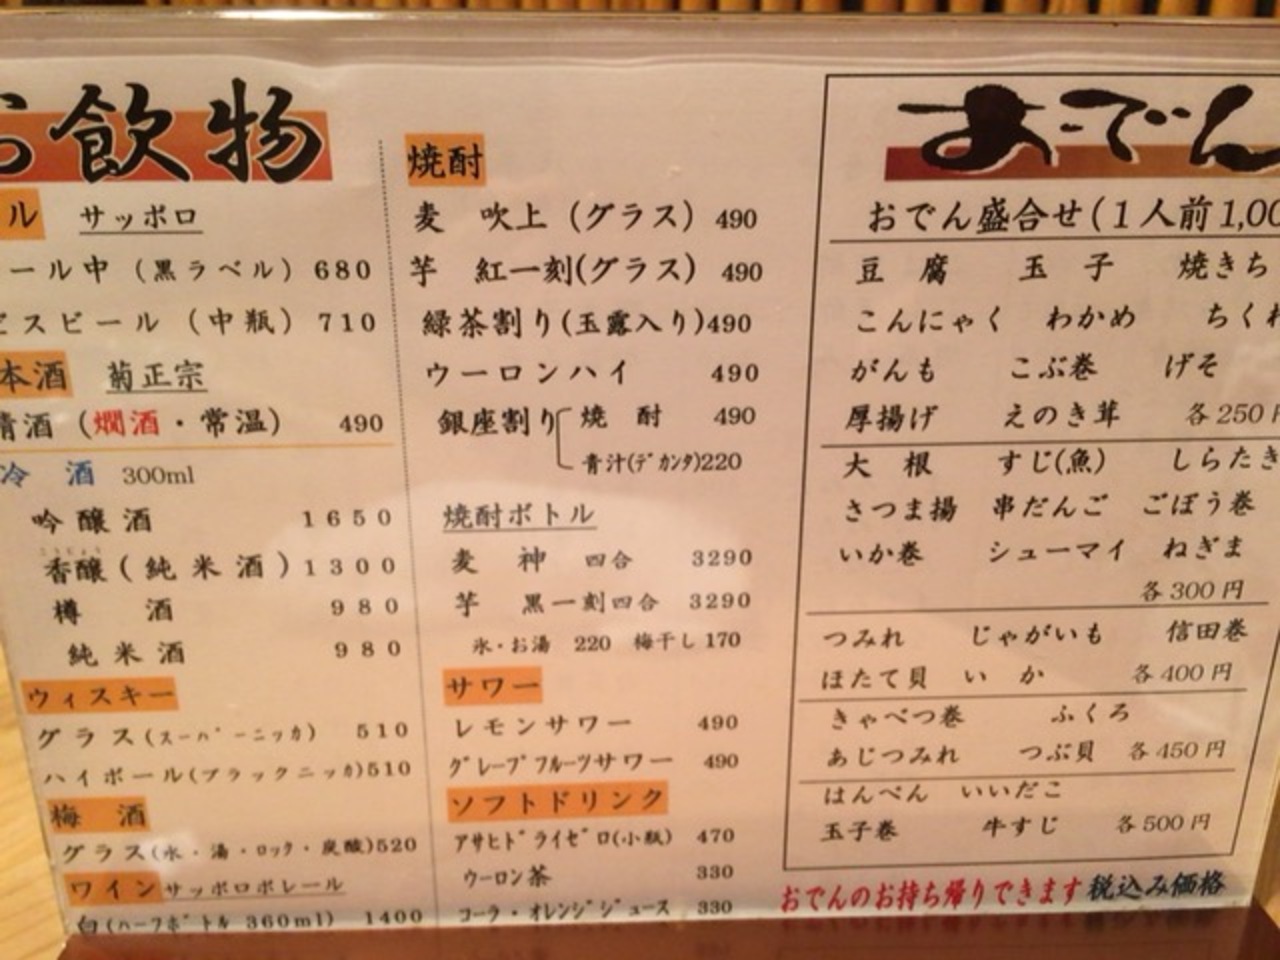 お飲物
ル サッポロ
ール中 (黒ラベル) 680
ビスビール (中瓶) 710
本酒 菊正宗
清酒 (燗酒・常温) 490
冷酒 300ml
吟醸酒 1650
香醸(純米酒) 1300
樽酒 980
純米酒 980
ウィスキー
グラス(スーパーニッカ) 510
ハイボール(ブラックニッカ)510
梅酒
グラス(氷・湯・ロック・炭酸)520
ワイン サッポロポレール
白(ハーフボトル 360ml) 1400
焼酎
麦 吹上 (グラス) 490
芋 紅一刻(グラス) 490
緑茶割り(玉露入り)490
ウーロンハイ 490
銀座割り 焼酎 490
青汁(デカンタ)220
焼酎ボトル
麦 神 四合 3290
芋 黒一刻四合 3290
氷・お湯 220 梅干し 170
サワー
レモンサワー 490
グレープフルーツサワー 490
ソフトドリンク
アサヒドライゼロ(小瓶) 470
ウーロン茶 330
コーラ・オレンジジュース 330
おでん
おでん盛合せ(1人前1,00
豆腐 玉子 焼きち
こんにゃく わかめ ちくわ
がんも こぶ巻 げそ
厚揚げ えのき茸 各250円
大根 すじ(魚) しらたき
さつま揚 串だんご ごぼう巻
いか巻 シューマイ ねぎま
各300円
つみれ じゃがいも 信田巻
ほたて貝 いか 各400円
きゃべつ巻 ふくろ
あじつみれ つぶ貝 各450円
はんぺん いいだこ
玉子巻 牛すじ 各500円
おでんのお持ち帰りできます 税込み価格